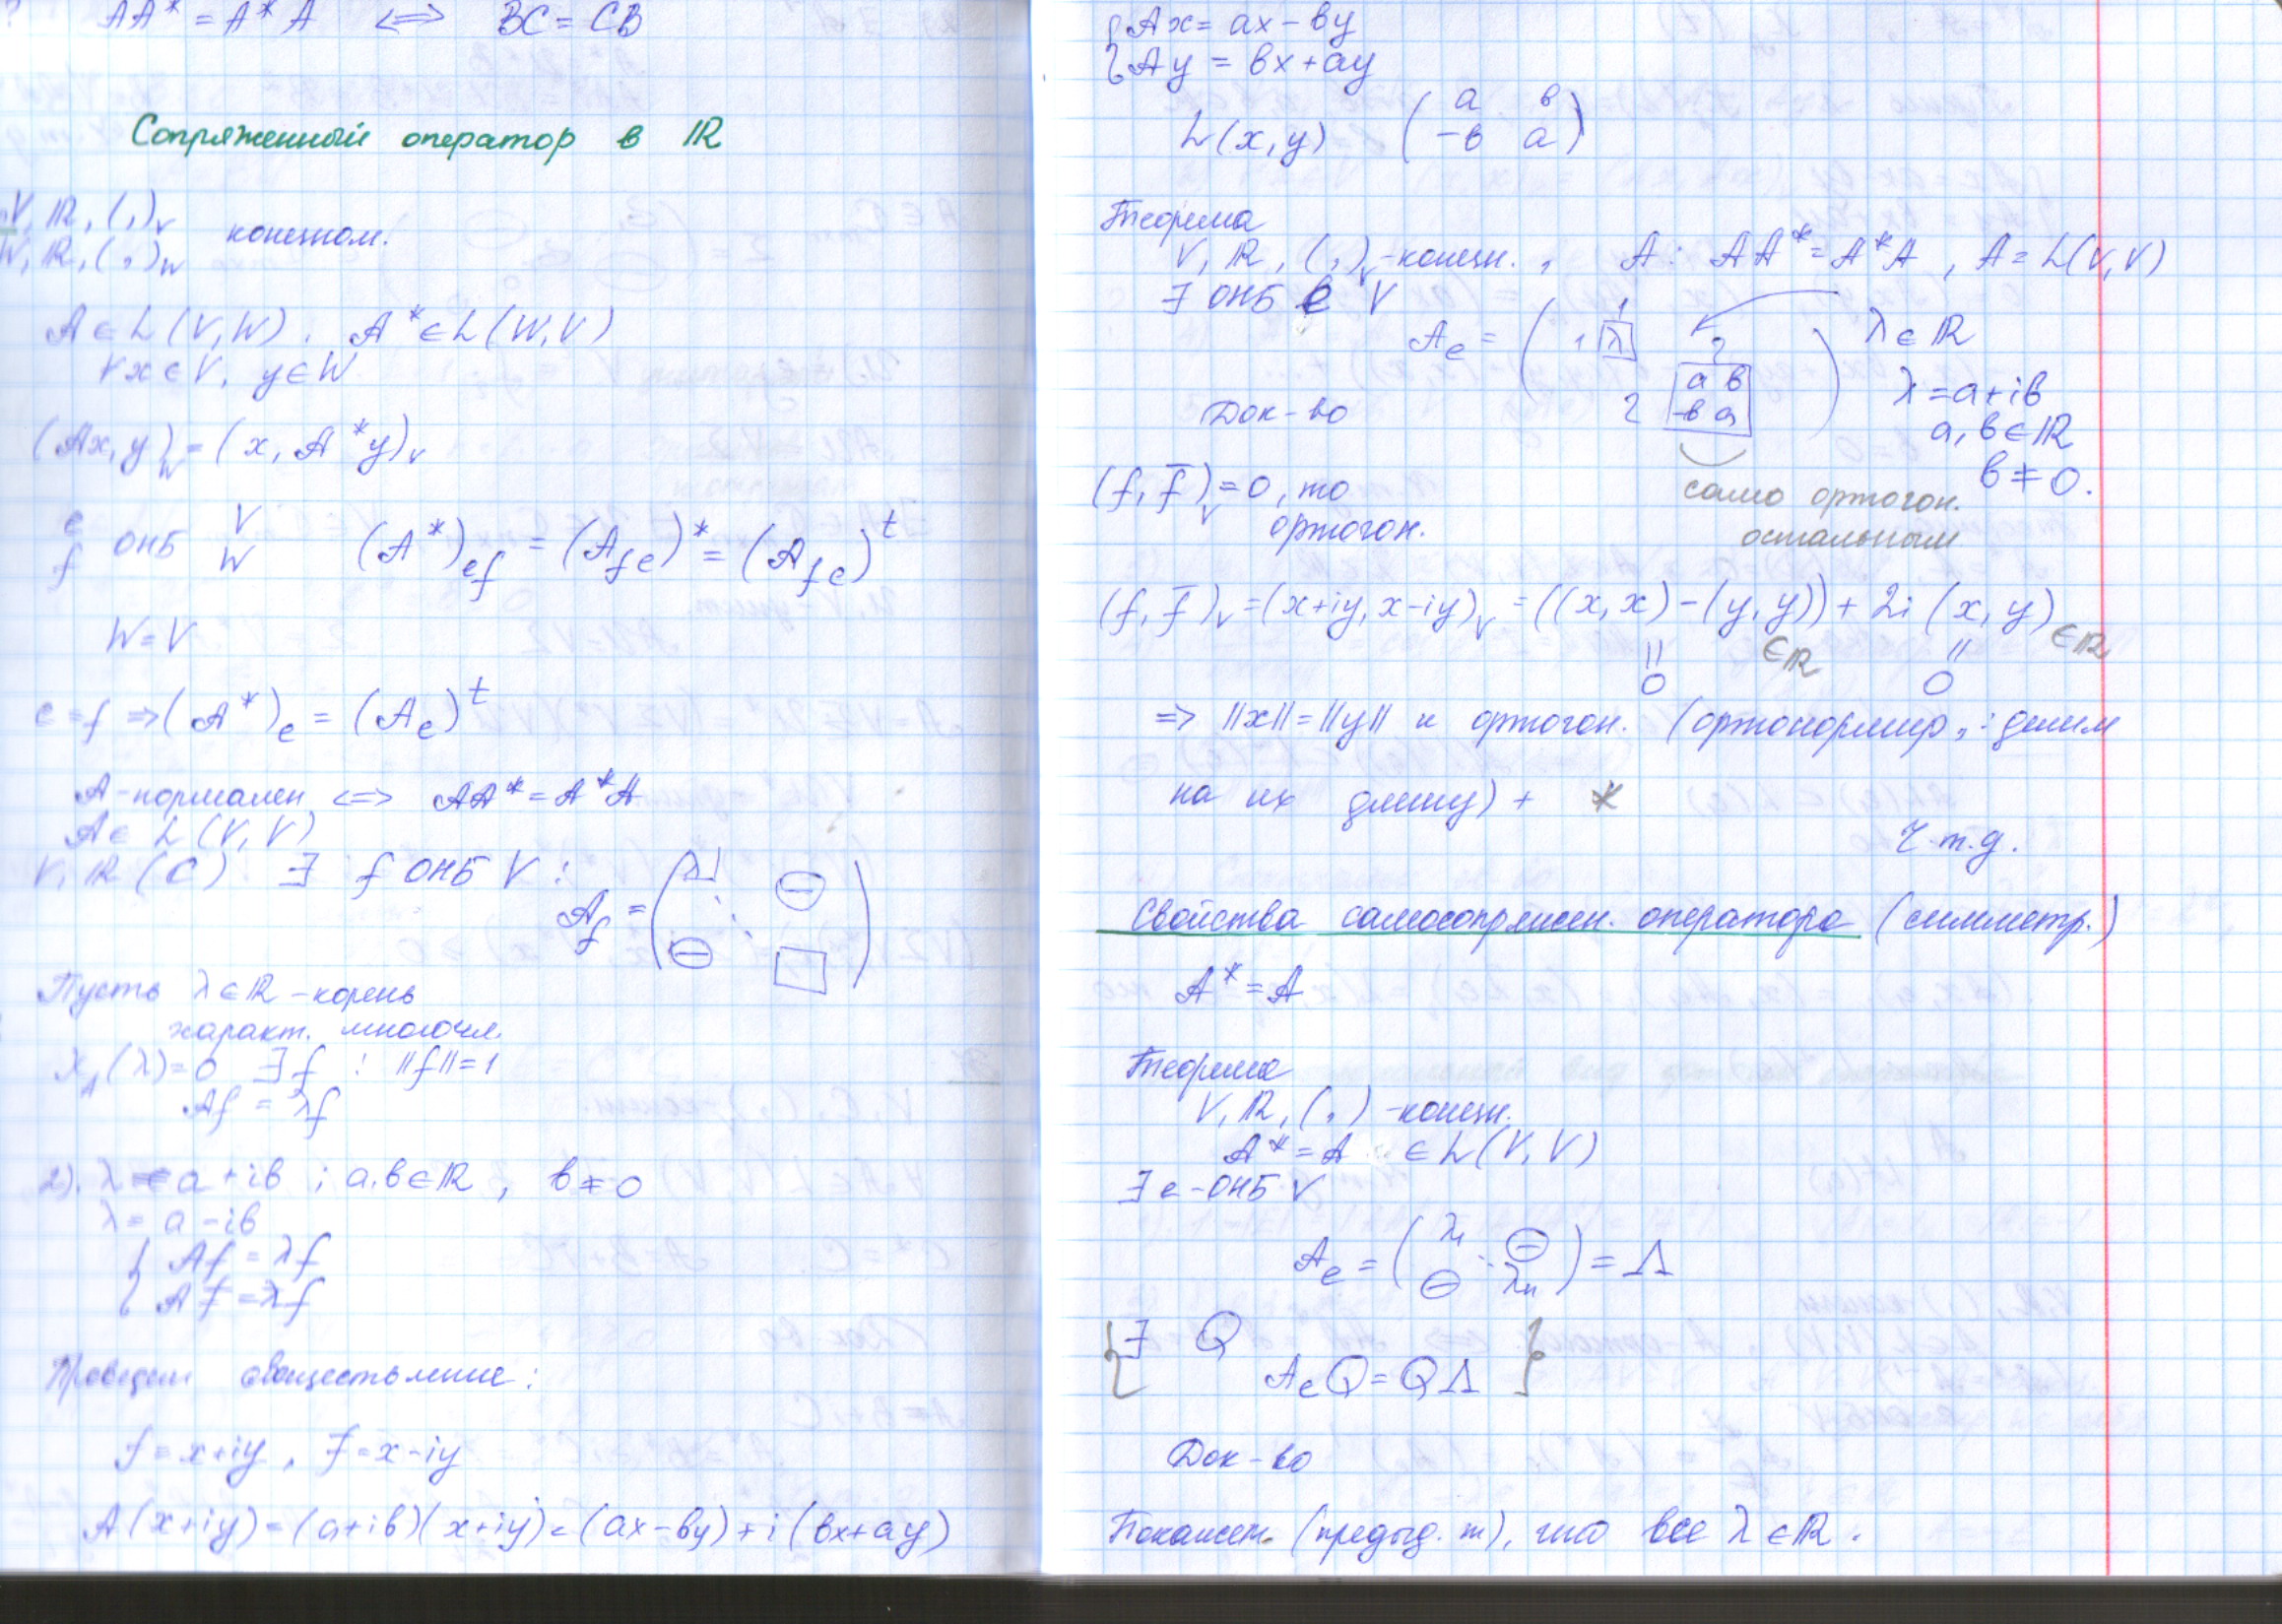 AA* = A*A ⟺ BC = CB
Сопряженный оператор в ℝ
V, ℝ, (,)_V
W, ℝ, (,)_W конечном.
A ∈ L(V,W). A* ∈ L(W,V)
∀x ∈ V, y ∈ W
(Ax, y)_W = (x, A*y)_V
e f ОНБ V W (A*)_ef = (A_fe)* = (A_fe)^t
W = V
e = f ⇒ (A*)_e = (A_e)^t
A - нормален ⟺ AA* = A*A
A ∈ L(V,V)
V, ℝ (C) ∃ f ОНБ V:
A_f = (λ ⊖ ⊖ □)
Пусть λ ∈ ℝ - корень
характ. многочл.
χ_A(λ) = 0 ∃f : ||f|| = 1
Af = λf
2). λ = a + iв ; a, в ∈ ℝ, в ≠ 0
λ = a - iв
{ Af = λf
{ Af̄ = λ̄f̄
Проведем овеществление:
f = x + iy, f̄ = x - iy
A(x+iy) = (a+iв)(x+iy) = (ax-вy) + i(вx+ay)
{ Ax = ax - вy
{ Ay = вx + ay
L(x,y) (a в
-в a)
Теорема
V, ℝ, (,)_V - конечн., A: AA* = A*A, A = L(V,V)
∃ ОНБ e V
A_e = ( 1 1 λ 2 2 a в -в a ) λ ∈ ℝ
λ = a + iв
a, в ∈ ℝ
в ≠ 0.
Док-во
(f, f̄)_V = 0, то
ортогон.
само ортогон.
остальным
(f, f̄)_V = (x+iy, x-iy)_V = ((x,x) - (y,y)) + 2i(x,y)
|| 0 ∈ℝ || 0 ∈ℝ
⇒ ||x|| = ||y|| и ортогон. (ортонормир,: делим
на их длину) + *
Ч.т.д.
Свойства самосопряжен. оператора (симметр.)
A* = A
Теорема
V, ℝ, (,) - конечн.
A* = A ∈ L(V,V)
∃ e - ОНБ V
A_e = (λ₁ ⊖ ⊖ λn) = Λ
{ ∃ Q
A_e Q = QΛ }
Док-во
Покажем (предыд. т), что все λ ∈ ℝ.